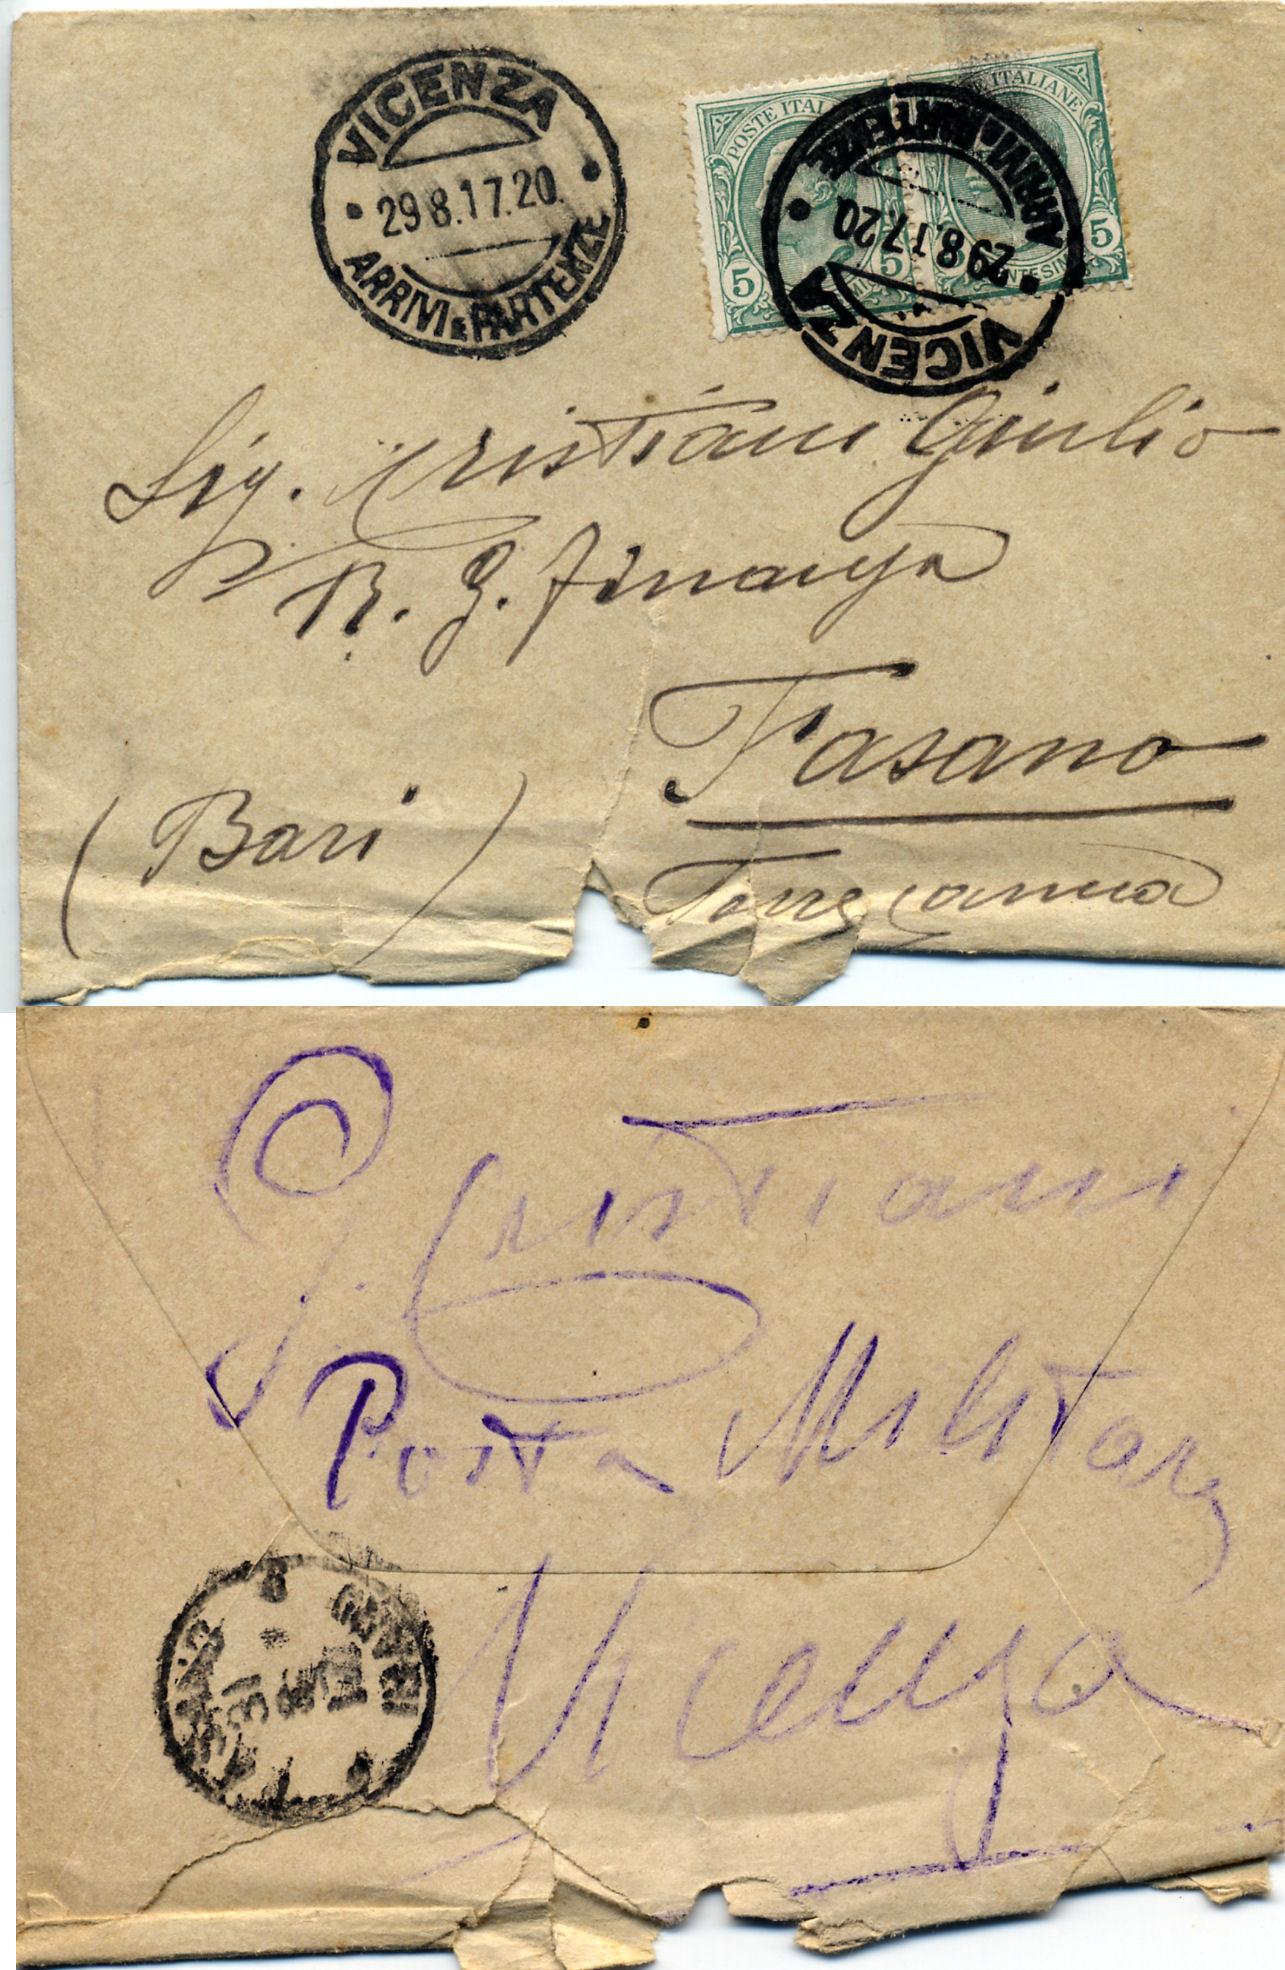 VICENZA
29 8.17.20.
ARRIVI E PARTENZE
POSTE ITAL
E ITALIANE
5 5
5
VICENZA
29 8.17.20.
ARRIVI E PARTENZE
Sig. Cristiani Giulio
R. G. Finanza
Fasano
(Bari)
Torre Canne
G. Cristiani
Posta Militare
Vicenza